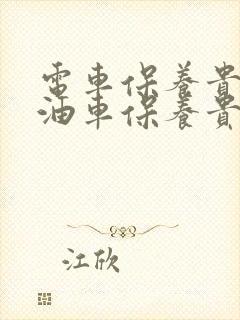 電車保養貴
油車保養貴
江欣